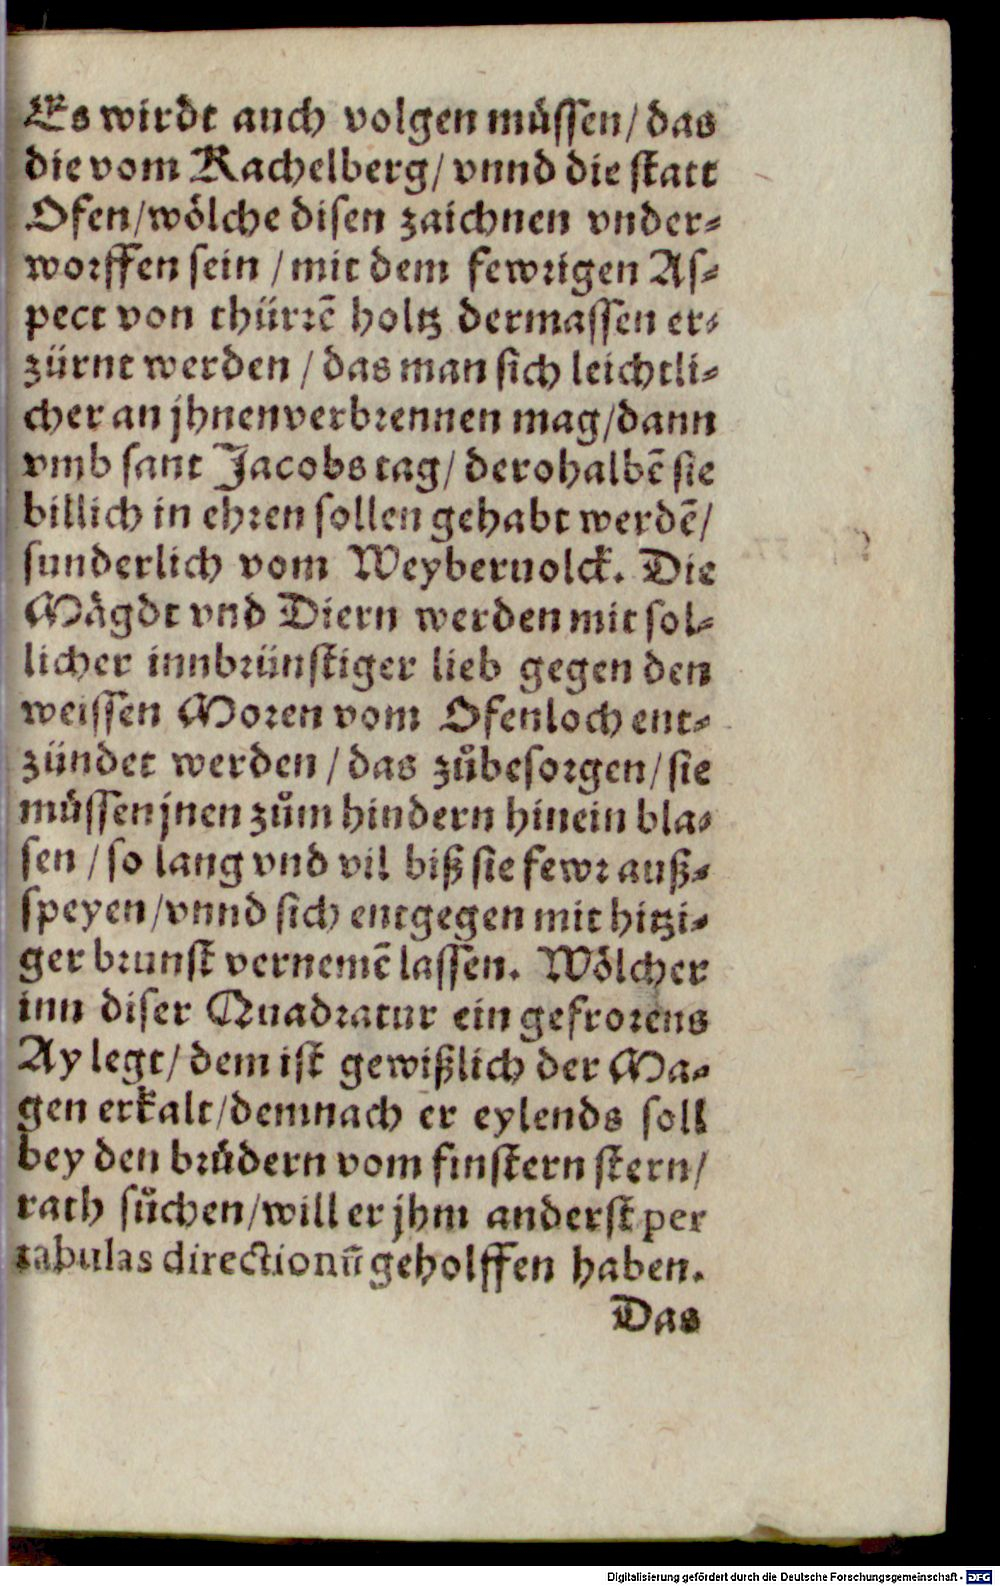 Es wirdt auch volgen müssen/ das
die vom Kachelberg/ vnnd die statt
Ofen/ wölche disen zaichnen vnder-
worffen sein / mit dem fewrigen As-
pect von thürrē holtz dermassen er-
zürnt werden / das man sich leichtli-
cher an jhnen verbrennen mag/ dann
vmb sant Jacobs tag/ derohalbē sie
billich in ehren sollen gehabt werdē/
sunderlich vom Weyberuolck. Die
Mägdt vnd Diern werden mit sol-
licher innbrünstiger lieb gegen den
weissen Moren vom Ofenloch ent-
zündet werden / das zůbesorgen/ sie
müssen jnen zům hindern hinein bla-
sen / so lang vnd vil biß sie fewr auß-
speyen/ vnnd sich entgegen mit hitzi-
ger brunst vernemē lassen. Wölcher
inn diser Quadratur ein gefrorens
Ay legt/ dem ist gewißlich der Ma-
gen erkalt/ demnach er eylends soll
bey den brüdern vom finstern stern/
rath sůchen/ will er jhm anderst per
tabulas directionū geholffen haben.
Das
Digitalisierung gefördert durch die Deutsche Forschungsgemeinschaft - DFG